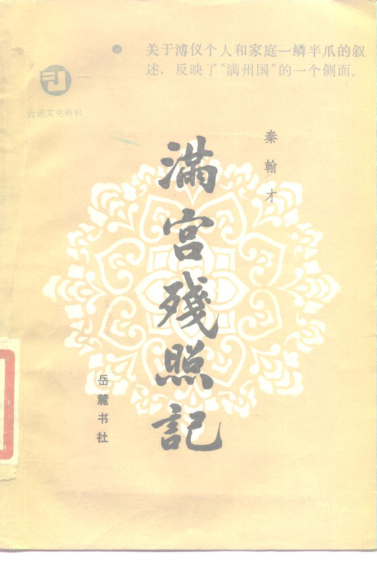 关于溥仪个人和家庭一鳞半爪的叙
述，反映了“满州国”的一个侧面。
近世文史资料
秦翰才
滿宮殘照記
岳麓书社